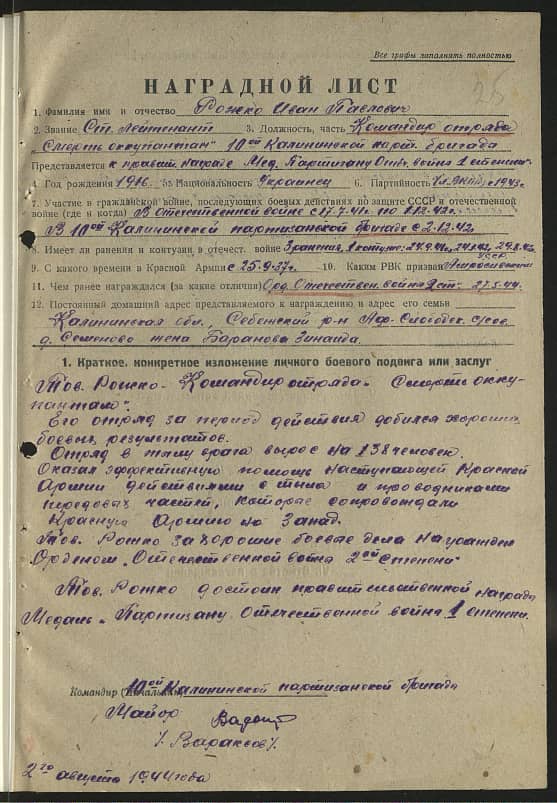 Все графы заполнять полностью
НАГРАДНОЙ ЛИСТ
1. Фамилия имя и отчество Рожко Иван Павлович
2. Звание Ст. лейтенант 3. Должность, часть Командир отряда
„Смерть оккупантам" 10ой Калининской парт. бригады
Представляется к правит. награде Мед. Партизану Отеч. война 1 степени"
4. Год рождения 1916 5. Национальность Украинец 6. Партийность 1943г.
7. Участие в гражданской войне, последующих боевых действиях по защите СССР и отечественной
войне (где и когда) В отечественной войне с 17.7.41г. по 1.12.42г.
В 10ой Калининской партизанской бригаде с 2.12.42
8. Имеет ли ранения и контузии в отечест. войне 3 ранения, 1 контуже:
9. С какого времени в Красной Армии с 25.9.37г. 10. Каким РВК призван
11. Чем ранее награждался (за какие отличия) Орд. Отечествен. война 2 ст. 27.5.44.
12. Постоянный домашний адрес представляемого к награждению и адрес его семьи
Калининская обл., Себежский р-н
д. Семеново жена Баранова Зинаида
1. Краткое, конкретное изложение личного боевого подвига или заслуг
Тов. Рожко - Командир отряда „Смерть окку-
пантам".
Его отряд за период действия добился хороших
боевых результатов.
Отряд в тылу врага вырос на 138 человек.
Оказал эффективную помощь наступающей Красной
Армии действиями с тыла и проводниками
передовых частей, которые сопровождали
Красную Армию на Запад.
Тов. Рожко за хорошие боевые дела награжден
Орденом „Отечественной война 2ой степени"
Тов. Рожко достоин правительственной награда
Медаль „Партизану Отечественной война 1 степени.
Командир (Начальник) 10ой Калининской партизанской бригада
Майор
/. Вараксов /.
2го августа 1944 года